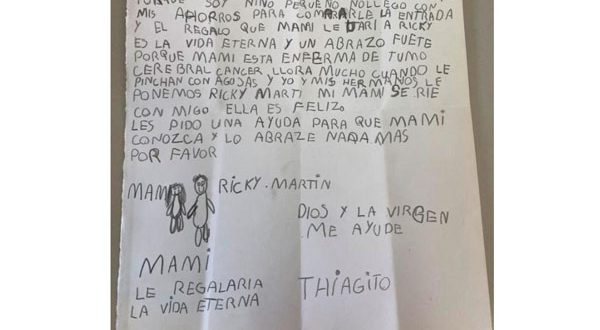 PORQUE SOY NIÑO PEQUEÑO NOLLEGO CON
MIS AHORROS PARA COMPRARLE LA ENTRADA
Y EL REGALO QUE MAMI LE DARI A RICKY
ES LA VIDA ETERNA Y UN ABRAZO FUETE
PORQUE MAMI ESTA ENFERMA DE TUMO
CEREBRAL CANCER, LLORA MUCHO CUANDO LE
PINCHAN CON AGUJAS Y YO Y MIS HERMANOS LE
PONEMOS RICKY MARTI MI MAMI SE RIE
CON MIGO ELLA ES FELIZ
LES PIDO UNA AYUDA PARA QUE MAMI
CONOZCA Y LO ABRAZE NADA MAS
POR FAVOR
MAMI RICKY. MARTIN
DIOS Y LA VIRGEN
ME AYUDE
MAMI
LE REGALARIA
LA VIDA ETERNA
THIAGITO